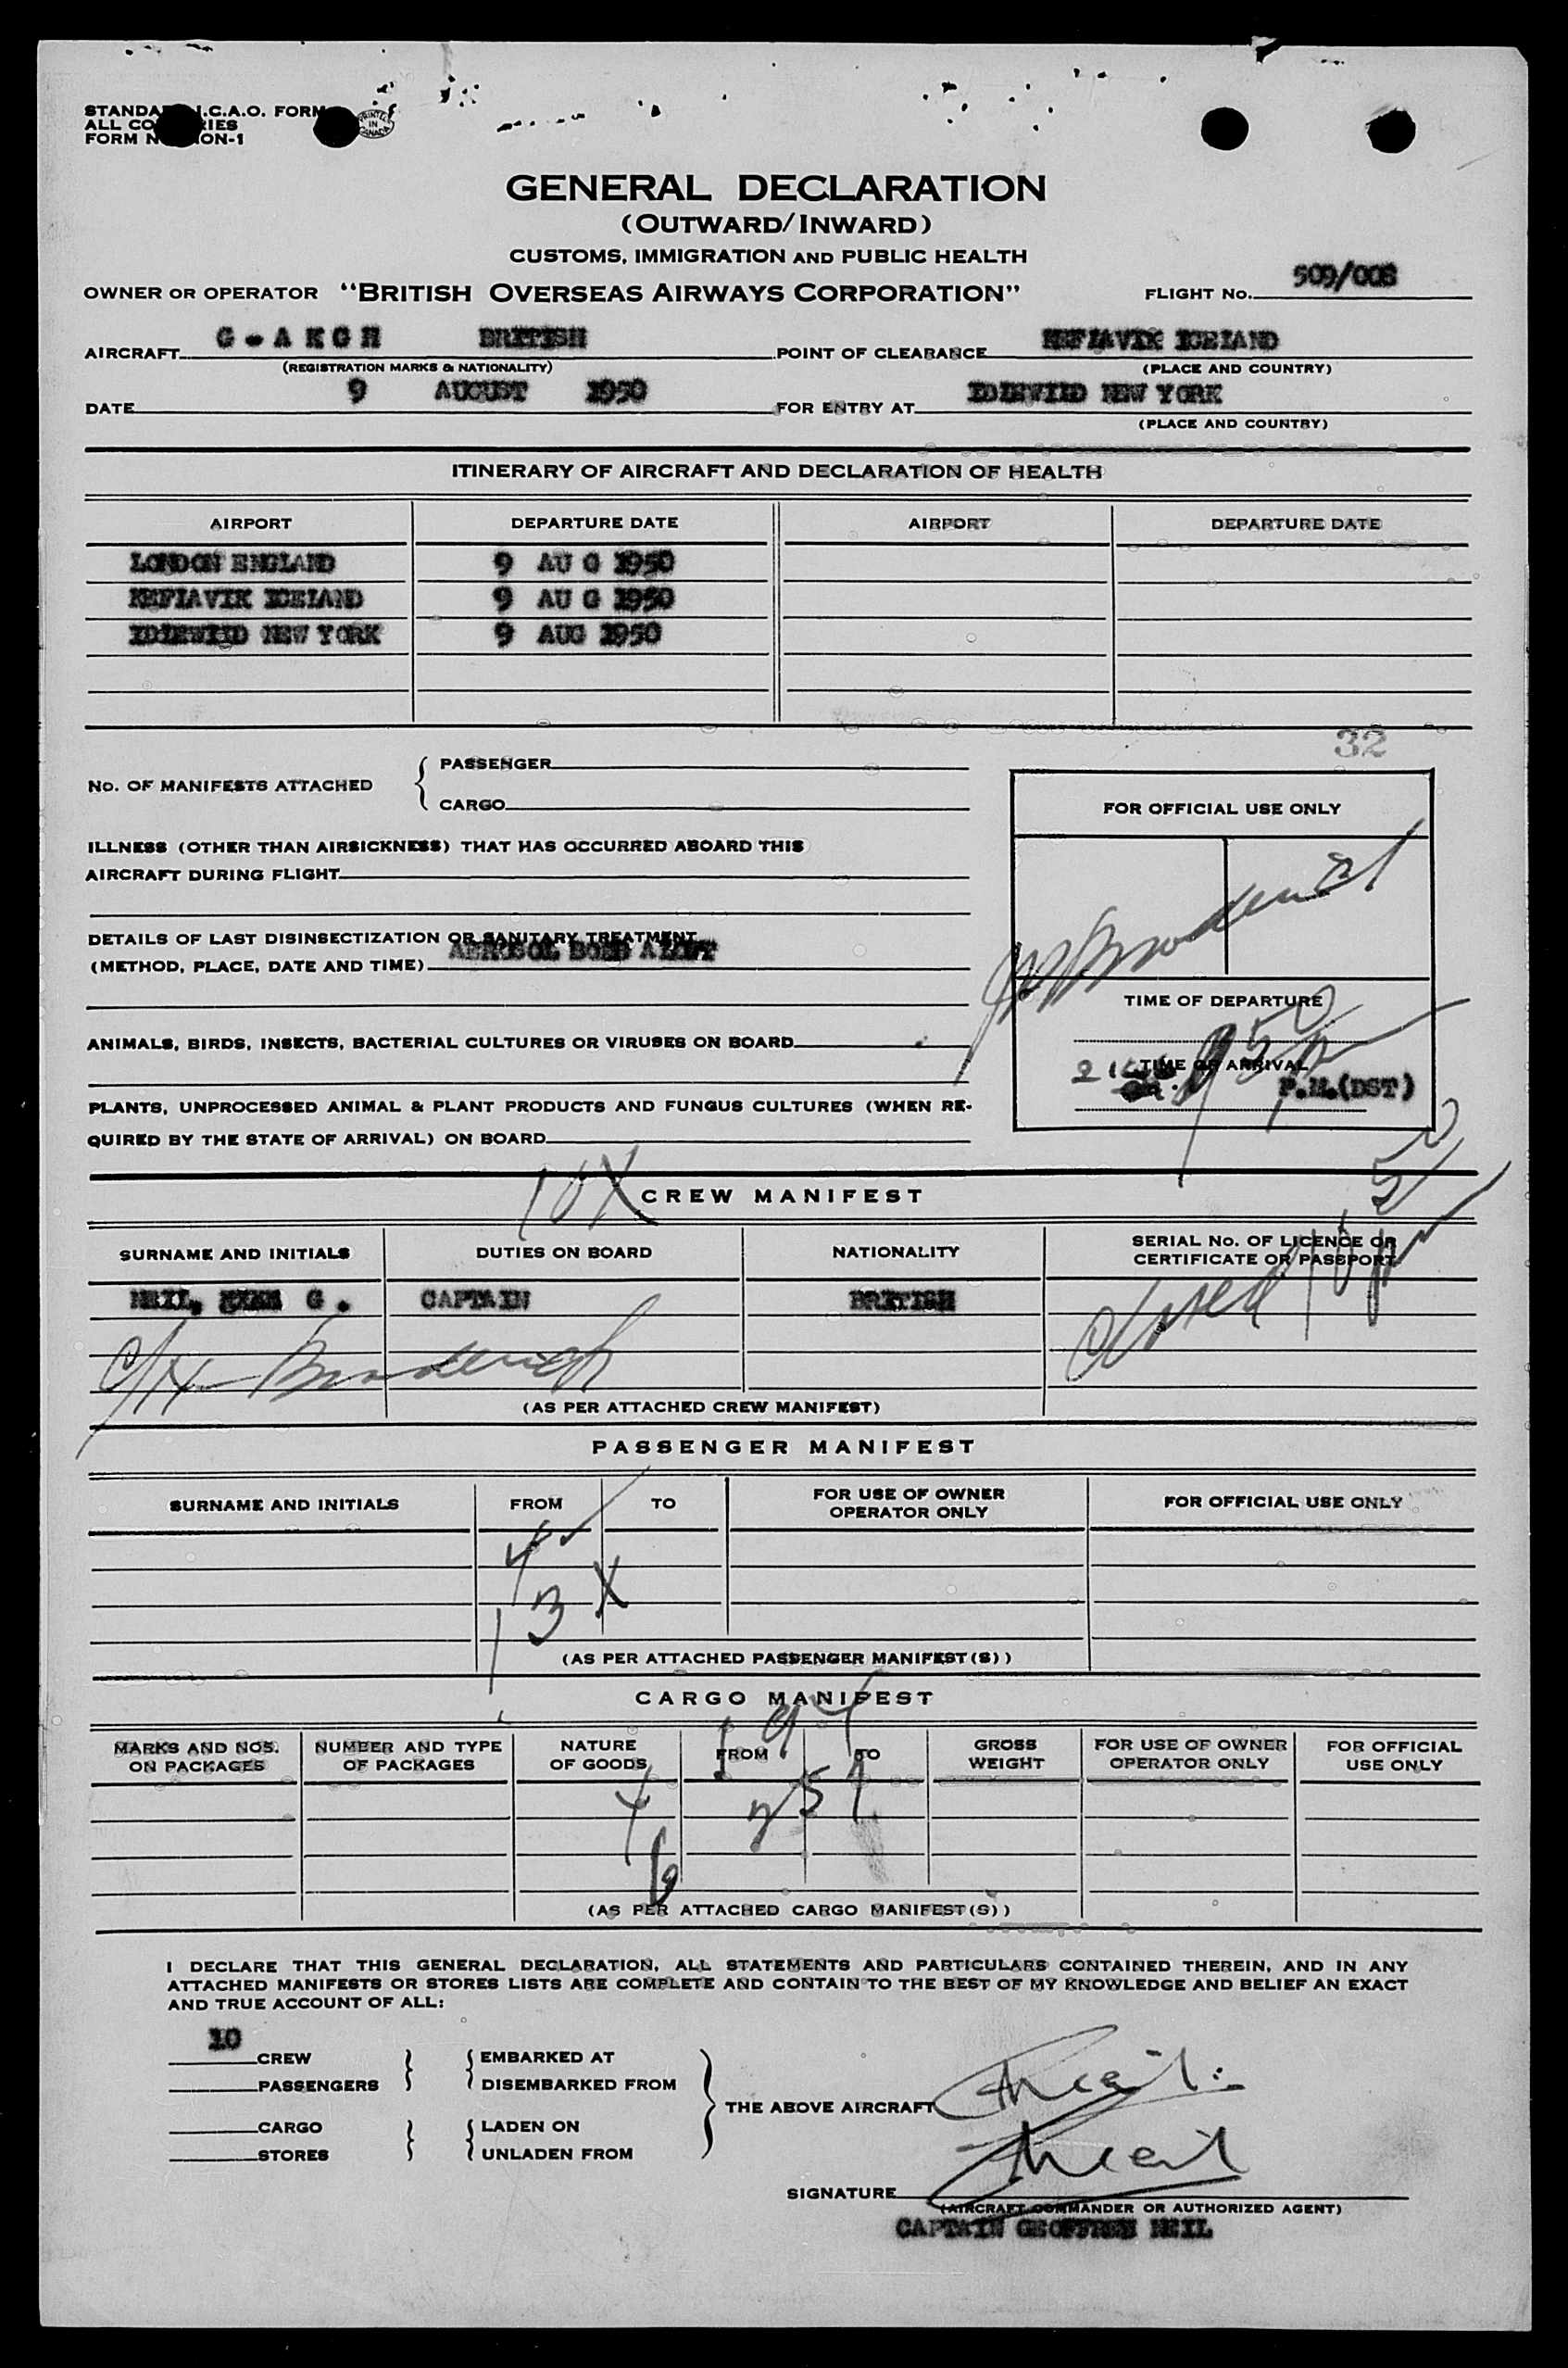 STANDA I.C.A.O. FORM
ALL CO RIES
FORM N ON-1
PRINTED IN CANADA
GENERAL DECLARATION
(OUTWARD/INWARD)
CUSTOMS, IMMIGRATION AND PUBLIC HEALTH
OWNER OR OPERATOR "BRITISH OVERSEAS AIRWAYS CORPORATION" FLIGHT No. 509/008
AIRCRAFT G-AKGH BRITISH POINT OF CLEARANCE KEFLAVIK ICELAND
(REGISTRATION MARKS & NATIONALITY) (PLACE AND COUNTRY)
DATE 9 AUGUST 1950 FOR ENTRY AT IDLEWILD NEW YORK
(PLACE AND COUNTRY)
ITINERARY OF AIRCRAFT AND DECLARATION OF HEALTH
AIRPORT DEPARTURE DATE AIRPORT DEPARTURE DATE
LONDON ENGLAND 9 AU G 1950
KEFLAVIK ICELAND 9 AU G 1950
IDLEWILD NEW YORK 9 AUG 1950
32
No. OF MANIFESTS ATTACHED { PASSENGER
CARGO
FOR OFFICIAL USE ONLY
ILLNESS (OTHER THAN AIRSICKNESS) THAT HAS OCCURRED ABOARD THIS
AIRCRAFT DURING FLIGHT
DETAILS OF LAST DISINSECTIZATION OR SANITARY TREATMENT
(METHOD, PLACE, DATE AND TIME) AEROSOL BOMB ALOFT
TIME OF DEPARTURE
ANIMALS, BIRDS, INSECTS, BACTERIAL CULTURES OR VIRUSES ON BOARD
TIME OF ARRIVAL
P.M.(DST)
PLANTS, UNPROCESSED ANIMAL & PLANT PRODUCTS AND FUNGUS CULTURES (WHEN RE-
QUIRED BY THE STATE OF ARRIVAL) ON BOARD
10X CREW MANIFEST
SURNAME AND INITIALS DUTIES ON BOARD NATIONALITY SERIAL No. OF LICENCE OR
CERTIFICATE OR PASSPORT
NEIL, G. CAPTAIN BRITISH
(AS PER ATTACHED CREW MANIFEST)
PASSENGER MANIFEST
SURNAME AND INITIALS FROM TO FOR USE OF OWNER
OPERATOR ONLY FOR OFFICIAL USE ONLY
4
13 X
(AS PER ATTACHED PASSENGER MANIFEST(S))
CARGO MANIFEST
MARKS AND NOS.
ON PACKAGES NUMBER AND TYPE
OF PACKAGES NATURE
OF GOODS FROM TO GROSS
WEIGHT FOR USE OF OWNER
OPERATOR ONLY FOR OFFICIAL
USE ONLY
(AS PER ATTACHED CARGO MANIFEST(S))
I DECLARE THAT THIS GENERAL DECLARATION, ALL STATEMENTS AND PARTICULARS CONTAINED THEREIN, AND IN ANY
ATTACHED MANIFESTS OR STORES LISTS ARE COMPLETE AND CONTAIN TO THE BEST OF MY KNOWLEDGE AND BELIEF AN EXACT
AND TRUE ACCOUNT OF ALL:
10 CREW } { EMBARKED AT
PASSENGERS DISEMBARKED FROM
THE ABOVE AIRCRAFT GNeil
CARGO } { LADEN ON
STORES UNLADEN FROM
SIGNATURE GNeil
(AIRCRAFT COMMANDER OR AUTHORIZED AGENT)
CAPTAIN GEOFFREY NEIL